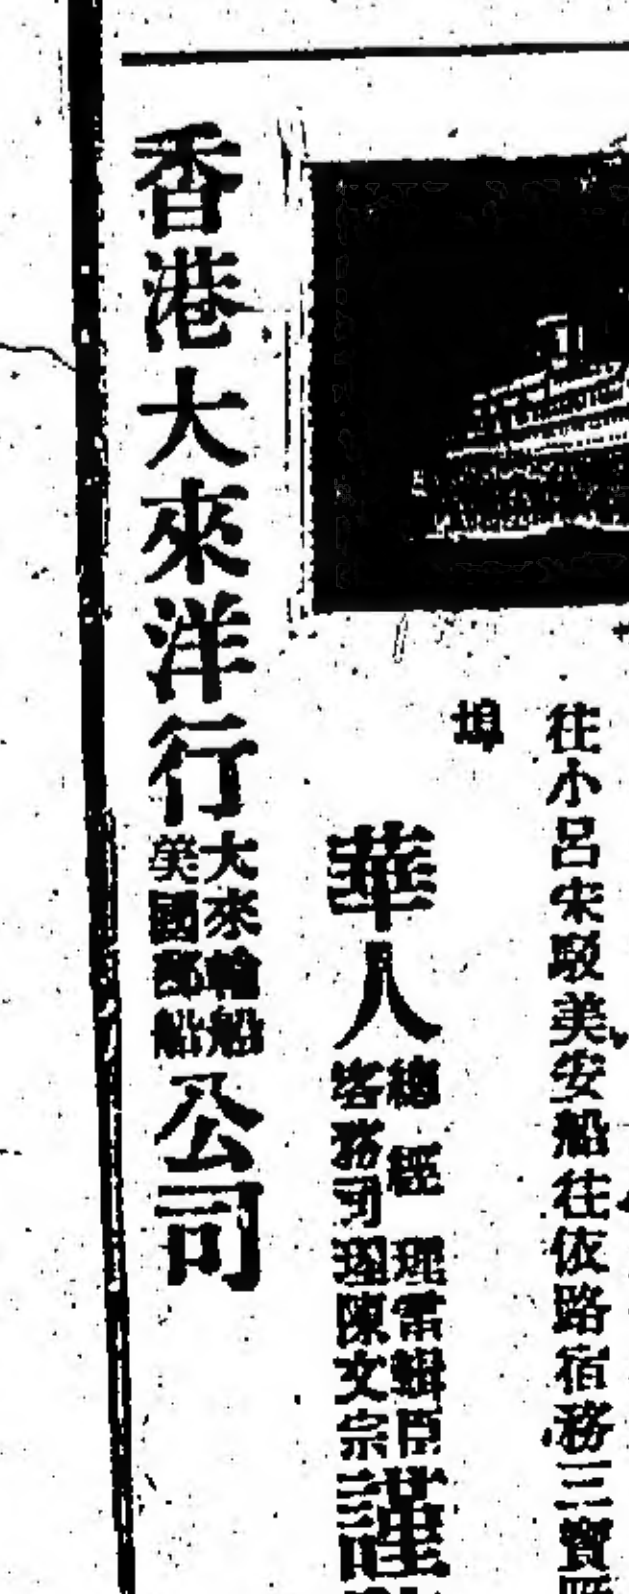 往小呂宋駁美安船往依路宿務三寶
埠
華人
總經理雷輯臣
客務司理陳文宗
謹
香港大來洋行
大來輪船
美國郵船
公司